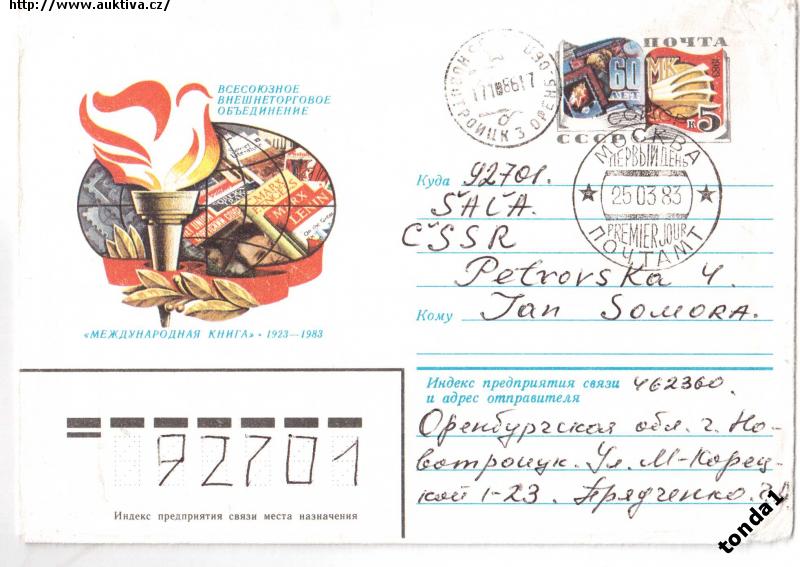 http://www.auktiva.cz/
ВСЕСОЮЗНОЕ
ВНЕШНЕТОРГОВОЕ
ОБЪЕДИНЕНИЕ
MARX
ENGELS
MARX
LENIN
«МЕЖДУНАРОДНАЯ КНИГА» · 1923—1983
ПОЧТА
60
ЛЕТ
МК
1983
СССР
к 5
МОСКВА
ПЕРВЫЙ ДЕНЬ
25 03 83
PREMIER JOUR
ПОЧТАМТ
Куда 92701.
ŠAĽA.
ČSSR
Petrovska 4.
Кому Jan Somora.
Индекс предприятия связи
и адрес отправителя
462360.
Оренбургская обл. г. Но-
вотроицк. Ул. М-Корец-
кой 1-23. Прядченко.
92701
Индекс предприятия связи места назначения
tonda1